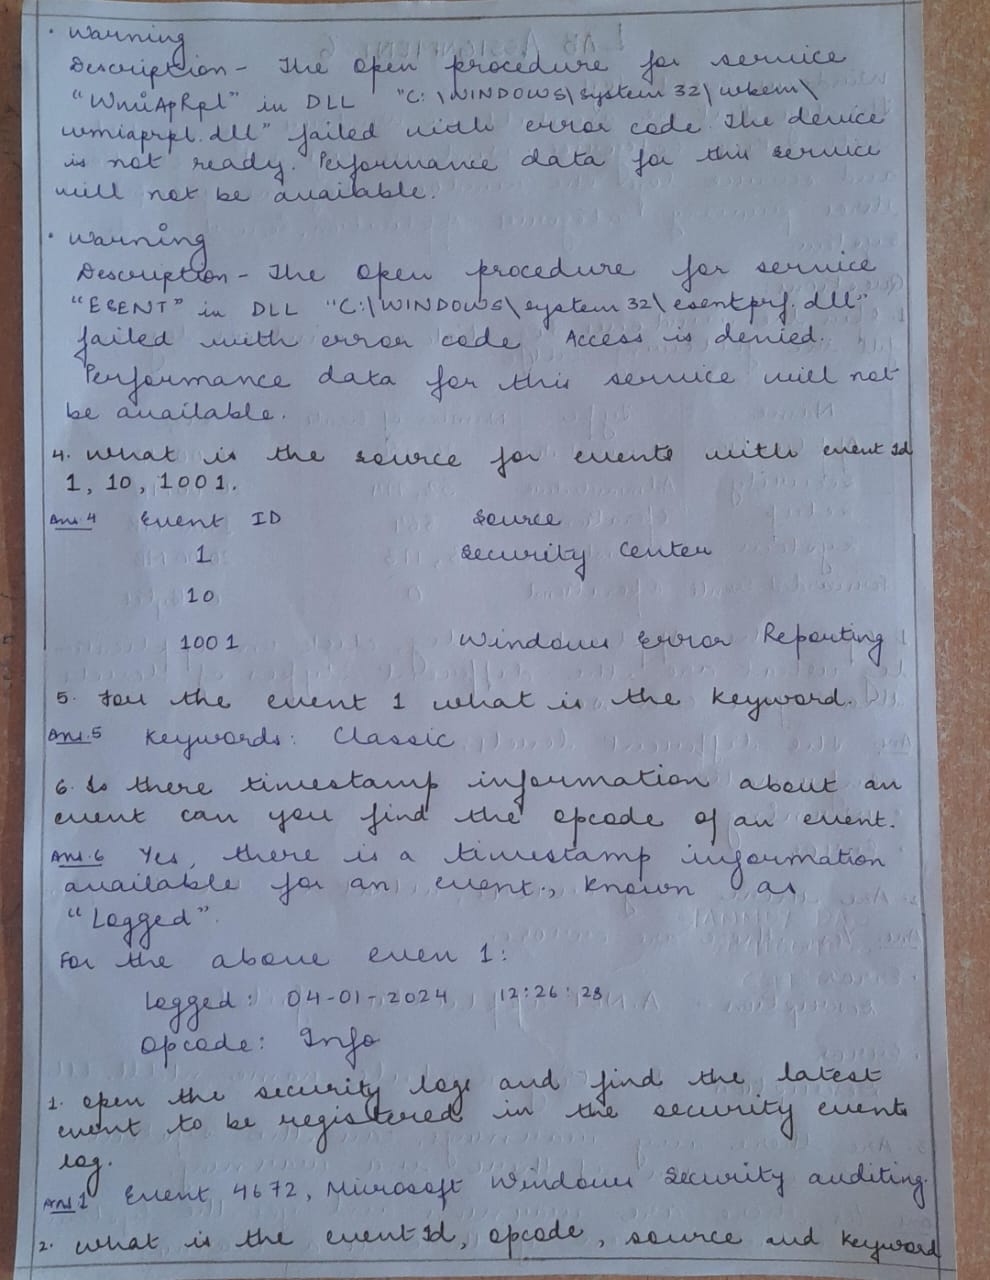 · Warning
Description - The open procedure for service
"WmiApRpl" in DLL "C:\WINDOWS\system 32\wbem\
wmiaprpl.dll" failed with error code The device
is not ready. Performance data for this service
will not be available.
· Warning
Description - The open procedure for service
"ESENT" in DLL "C:\WINDOWS\system 32\esentprf.dll"
failed with error code Access is denied.
Performance data for this service will not
be available.
4. What is the source for events with event Id
1, 10, 1001.
Ans.4 Event ID Source
1 Security Center
10
1001 Windows Error Reporting
5. For the event 1 what is the keyword.
Ans.5 Keywords: Classic
6. Is there timestamp information about an
event can you find the opcode of an event.
Ans.6 Yes, there is a timestamp information
available for an event, known as
"Logged".
For the above even 1:
Logged: 04-01-2024 12:26:28
Opcode: Info
1. open the security logs and find the latest
event to be registered in the security events
log.
Ans 1 Event 4672, Microsoft Windows Security auditing.
2. What is the event Id, opcode, source and keyword